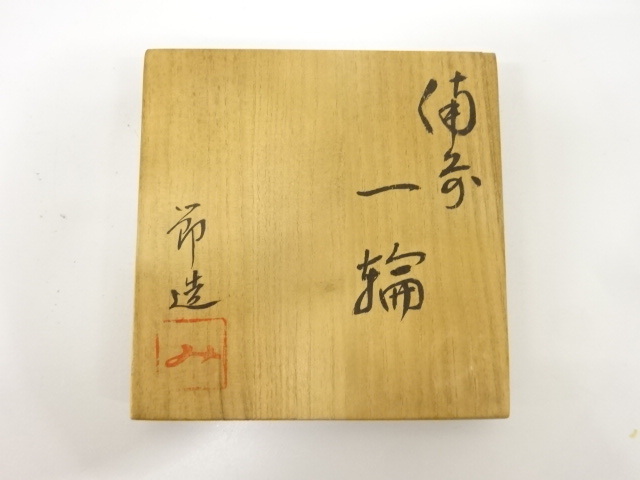 備前
一輪
節造